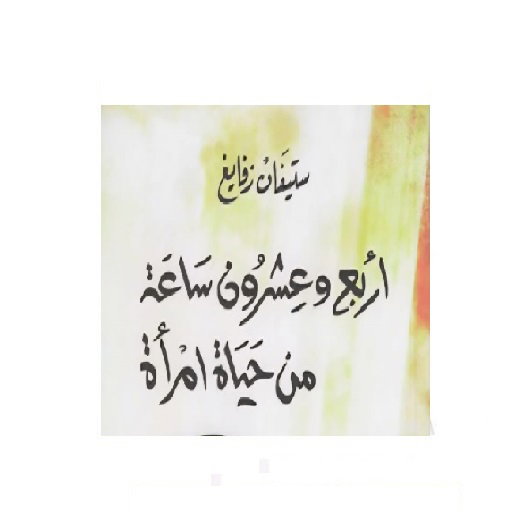 ستيفَانْ زفايغ
أربع وعِشرُون سَاعَة
من حَيَاة امْرأَة